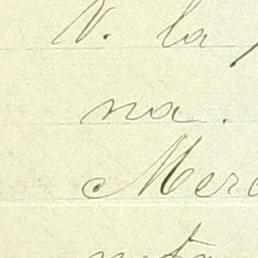 V. la
na.
Merc